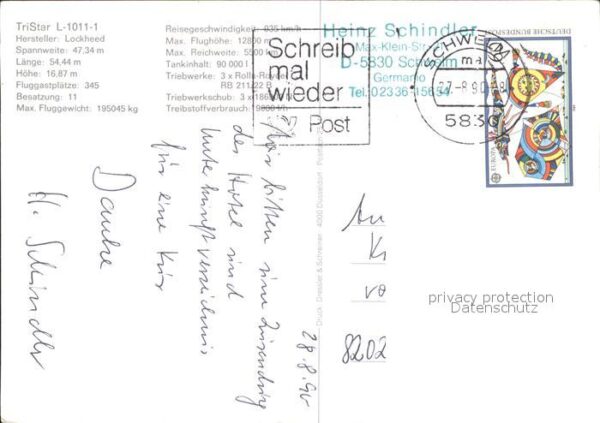 TriStar L-1011-1
Hersteller: Lockheed
Spannweite: 47,34 m
Länge: 54,44 m
Höhe: 16,87 m
Fluggastplätze: 345
Besatzung: 11
Max. Fluggewicht: 195045 kg
Reisegeschwindigkeit: 935 km/h
Max. Flughöhe: 12800 m
Max. Reichweite: 5500 km
Tankinhalt: 90 000 l
Triebwerke: 3 x Rolls-Royce
RB 211.22 B
Triebwerkschub: 3 x
Treibstoffverbrauch:
Schreib
mal
wieder
Post
Heinz Schindler
Max-Klein-Str.
D-5830 Schwelm
Germany
Tel. 02336
SCHWELM
27.-8.90
5830
DEUTSCHE BUNDESPOST
EUROPA
28.8.90
Wir bitten um Zusendung
des Hotel und
Unterkunftverzeichnis
für eine Kur
Danke
H. Schindler
Druck: Droste & 4000 Düsseldorf
An
vo
8202
privacy protection
Datenschutz